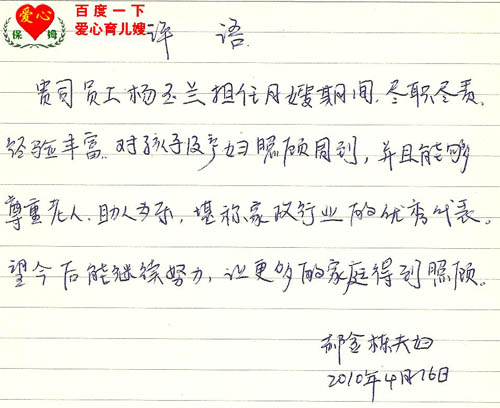 爱心
保姆
百度一下
爱心育儿嫂
评语
贵司员工杨玉兰担任月嫂期间.尽职尽责.
经验丰富.对孩子及产妇照顾周到,并且能够
尊重老人.助人为乐,堪称家政行业的优秀代表。
望今后能继续努力,让更多的家庭得到照顾。
郝金栋夫妇
2010年4月16日